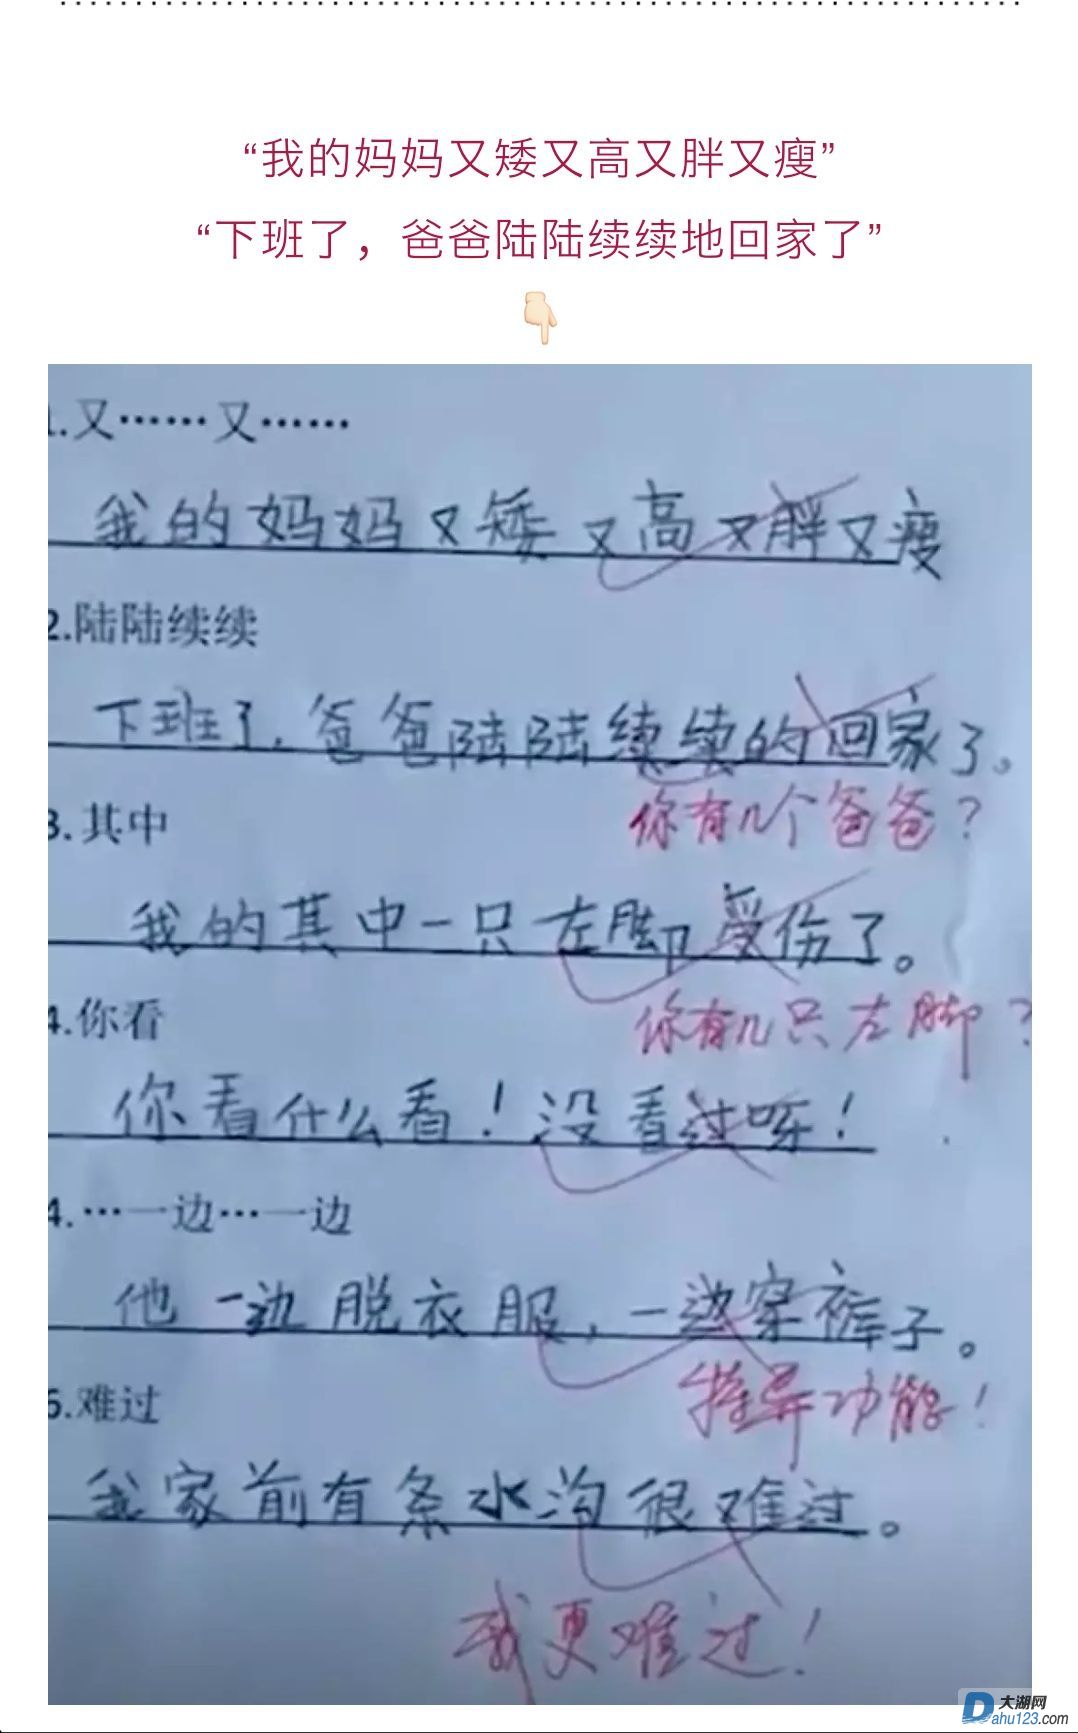 “我的妈妈又矮又高又胖又瘦”
“下班了，爸爸陆陆续续地回家了”
1.又……又……
我的妈妈又矮又高又胖又瘦
2.陆陆续续
下班了，爸爸陆陆续续的回家了。
你有几个爸爸？
3.其中
我的其中一只左脚受伤了。
你有几只左脚？
4.你看
你看什么看！没看过呀！
4.…一边…一边
他一边脱衣服，一边穿裤子。
特异功能！
5.难过
我家前有条水沟很难过。
我更难过！
大湖网
Dahu123.com